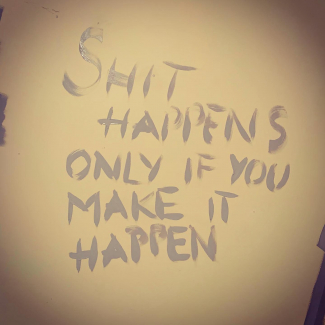 SHIT
HAPPENS
ONLY IF YOU
MAKE IT
HAPPEN